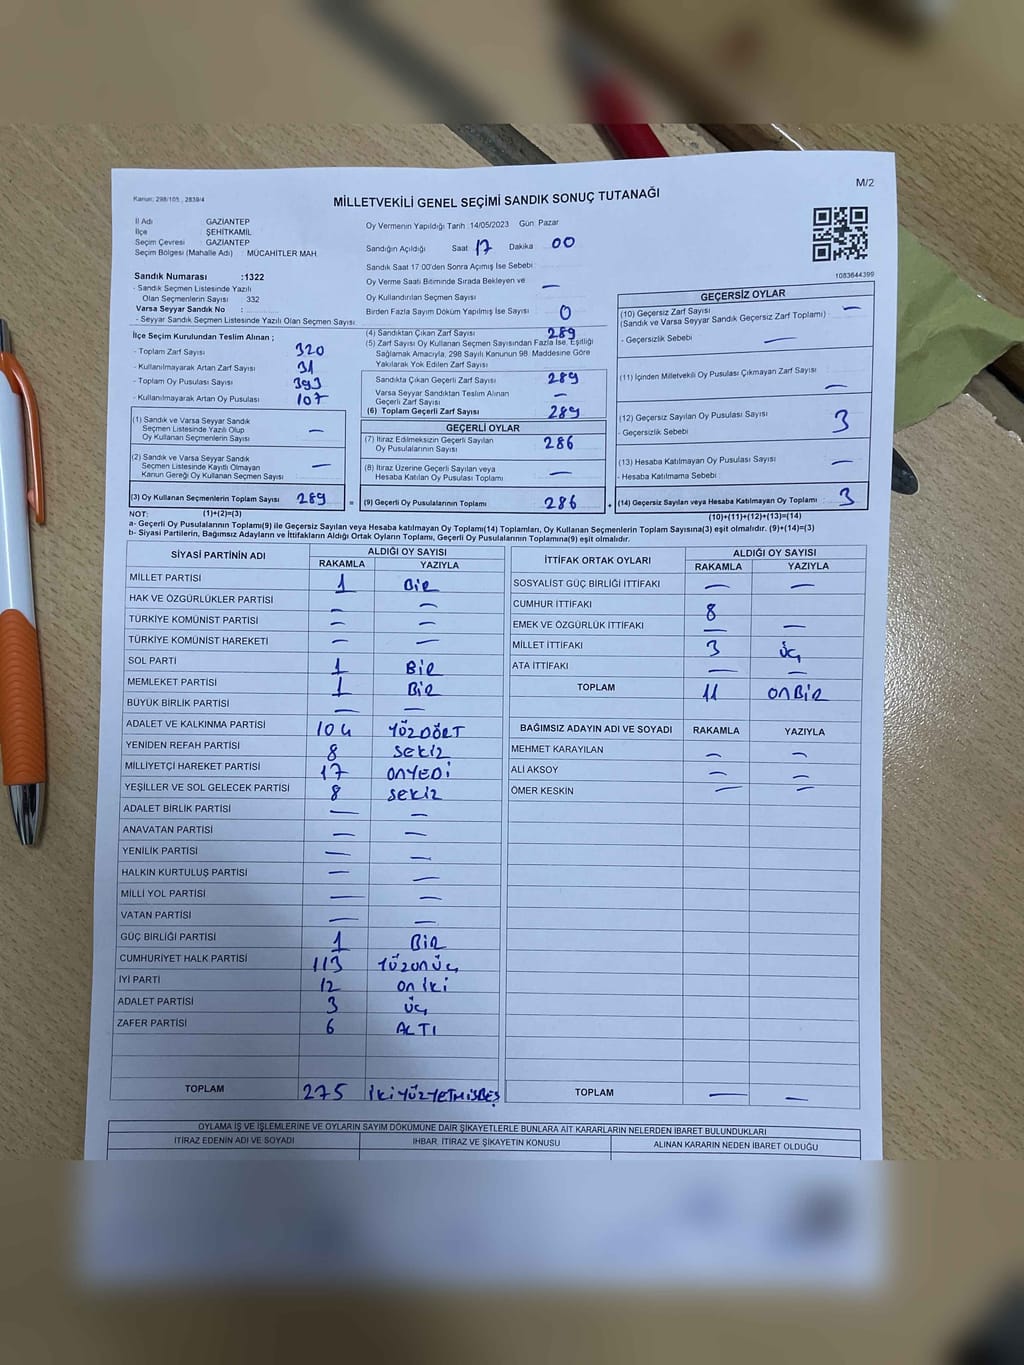 M/2
Kanun: 298/105 , 2839/4
MİLLETVEKİLİ GENEL SEÇİMİ SANDIK SONUÇ TUTANAĞI
İl Adı GAZİANTEP
İlçe ŞEHİTKAMİL
Seçim Çevresi GAZİANTEP
Seçim Bölgesi (Mahalle Adı) : MÜCAHİTLER MAH.
Sandık Numarası :1322
- Sandık Seçmen Listesinde Yazılı
Olan Seçmenlerin Sayısı : 332
Varsa Seyyar Sandık No :
- Seyyar Sandık Seçmen Listesinde Yazılı Olan Seçmen Sayısı:
Oy Vermenin Yapıldığı Tarih :14/05/2023 Gün: Pazar
Sandığın Açıldığı Saat 17 Dakika 00
Sandık Saat 17:00'den Sonra Açımış İse Sebebi :
Oy Verme Saati Bitiminde Sırada Bekleyen ve —
Oy Kullandırılan Seçmen Sayısı
Birden Fazla Sayım Döküm Yapılmış İse Sayısı : 0
1083644399
İlçe Seçim Kurulundan Teslim Alınan ;
- Toplam Zarf Sayısı 320
- Kullanılmayarak Artan Zarf Sayısı 31
- Toplam Oy Pusulası Sayısı 393
- Kullanılmayarak Artan Oy Pusulası 107
(1) Sandık ve Varsa Seyyar Sandık
Seçmen Listesinde Yazılı Olup —
Oy Kullanan Seçmenlerin Sayısı
(2) Sandık ve Varsa Seyyar Sandık
Seçmen Listesinde Kayıtlı Olmayan —
Kanun Gereği Oy Kullanan Seçmen Sayısı
(3) Oy Kullanan Seçmenlerin Toplam Sayısı 289 =
(4) Sandıktan Çıkan Zarf Sayısı 289
(5) Zarf Sayısı Oy Kullanan Seçmen Sayısından Fazla İse, Eşitliği
Sağlamak Amacıyla, 298 Sayılı Kanunun 98. Maddesine Göre
Yakılarak Yok Edilen Zarf Sayısı
Sandıkta Çıkan Geçerli Zarf Sayısı 289
Varsa Seyyar Sandıktan Teslim Alınan —
Geçerli Zarf Sayısı
(6) Toplam Geçerli Zarf Sayısı 289
GEÇERLİ OYLAR
(7) İtiraz Edilmeksizin Geçerli Sayılan 286
Oy Pusulalarının Sayısı
(8) İtiraz Üzerine Geçerli Sayılan veya —
Hesaba Katılan Oy Pusulası Toplamı
(9) Geçerli Oy Pusulaları Toplamı 286 +
GEÇERSİZ OYLAR
(10) Geçersiz Zarf Sayısı —
(Sandık ve Varsa Seyyar Sandık Geçersiz Zarf Toplamı)
- Geçersizlik Sebebi : —
(11) İçinden Milletvekili Oy Pusulası Çıkmayan Zarf Sayısı —
(12) Geçersiz Sayılan Oy Pusulası Sayısı 3
- Geçersizlik Sebebi :
(13) Hesaba Katılmayan Oy Pusulası Sayısı —
- Hesaba Katılmama Sebebi :
(14) Geçersiz Sayılan veya Hesaba Katılmayan Oy Toplamı : 3
NOT: (1)+(2)=(3) (10)+(11)+(12)+(13)=(14)
a- Geçerli Oy Pusulalarının Toplamı(9) ile Geçersiz Sayılan veya Hesaba katılmayan Oy Toplamı(14) Toplamları, Oy Kullanan Seçmenlerin Toplam Sayısına(3) eşit olmalıdır. (9)+(14)=(3)
b- Siyasi Partilerin, Bağımsız Adayların ve İttifakların Aldığı Oyların Toplamı, Geçerli Oy Pusulaları Toplamına(9) eşit olmalıdır.
SİYASİ PARTİNİN ADI ALDIĞI OY SAYISI
RAKAMLA YAZIYLA
MİLLET PARTİSİ 1 BİR
HAK VE ÖZGÜRLÜKLER PARTİSİ — —
TÜRKİYE KOMÜNİST PARTİSİ — —
TÜRKİYE KOMÜNİST HAREKETİ — —
SOL PARTİ 1 BİR
MEMLEKET PARTİSİ 1 BİR
BÜYÜK BİRLİK PARTİSİ — —
ADALET VE KALKINMA PARTİSİ 104 YÜZDÖRT
YENİDEN REFAH PARTİSİ 8 SEKİZ
MİLLİYETÇİ HAREKET PARTİSİ 17 ONYEDİ
YEŞİLLER VE SOL GELECEK PARTİSİ 8 SEKİZ
ADALET BİRLİK PARTİSİ — —
ANAVATAN PARTİSİ — —
YENİLİK PARTİSİ — —
HALKIN KURTULUŞ PARTİSİ — —
MİLLİ YOL PARTİSİ — —
VATAN PARTİSİ — —
GÜÇ BİRLİĞİ PARTİSİ 1 BİR
CUMHURİYET HALK PARTİSİ 113 YÜZONÜÇ
İYİ PARTİ 12 ON İKİ
ADALET PARTİSİ 3 ÜÇ
ZAFER PARTİSİ 6 ALTI
TOPLAM 275 İKİYÜZYETMİŞBEŞ
İTTİFAK ORTAK OYLARI ALDIĞI OY SAYISI
RAKAMLA YAZIYLA
SOSYALİST GÜÇ BİRLİĞİ İTTİFAKI — —
CUMHUR İTTİFAKI 8
EMEK VE ÖZGÜRLÜK İTTİFAKI — —
MİLLET İTTİFAKI 3 ÜÇ
ATA İTTİFAKI — —
TOPLAM 11 ONBİR
BAĞIMSIZ ADAYIN ADI VE SOYADI RAKAMLA YAZIYLA
MEHMET KARAYILAN — —
ALİ AKSOY — —
ÖMER KESKİN — —
TOPLAM — —
OYLAMA İŞ VE İŞLEMLERİNE VE OYLARIN SAYIM DÖKÜMÜNE DAİR ŞİKAYETLERLE BUNLARA AİT KARARLARIN NELERDEN İBARET BULUNDUKLARI
İTİRAZ EDENİN ADI VE SOYADI İHBAR, İTİRAZ VE ŞİKAYETİN KONUSU ALINAN KARARIN NEDEN İBARET OLDUĞU